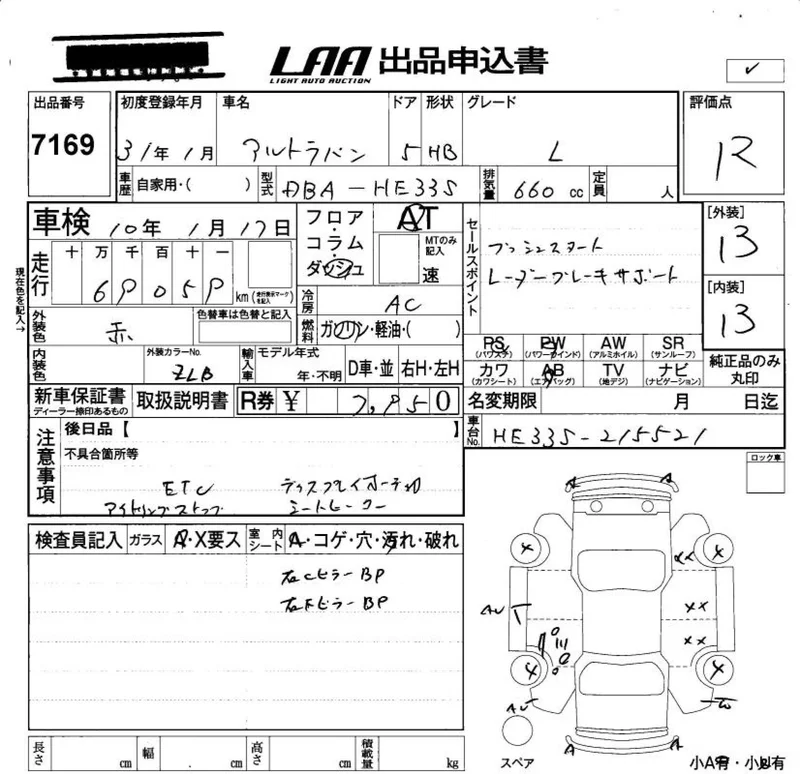 LAA 出品申込書
LIGHT AUTO AUCTION
出品番号
7169
初度登録年月 車名 ドア 形状 グレード
31年1月 アルトラパン 5 HB L
評価点
R
車歴 自家用・( ) 型式 DBA-HE33S 排気量 660 cc 定員 人
車検 10年 1月 17日
フロア・コラム・ダッシュ
AT
MTのみ記入
速
セールスポイント
プッシュスタート
レーダーブレーキサポート
[外装]
13
[内装]
13
現在色を記入→
走行 十 万 千 百 十 一
6 9 0 5 9 km (走行表示マークを記入)
冷房 AC
燃料 ガソリン・軽油・( )
外装色 赤 色替車は色替と記入
内装色 外装カラーNo. ZLB
輸入車 モデル年式 年・不明 D車・並 右H・左H
PS (パワステ) PW (パワーウインド) AW (アルミホイル) SR (サンルーフ)
カワ (カワシート) AB (エアバッグ) TV (地デジ) ナビ (ナビゲーション)
純正品のみ丸印
新車保証書 ディーラー捺印あるもの 取扱説明書 R券 ¥ 7,950
名変期限 月 日迄
車台No. HE33S-215521
注意事項
後日品【 】
不具合箇所等
ETC ディスプレイオーディオ
アイドリングストップ シートヒーター
ロック車
検査員記入 ガラス A・X要ス 室内シート A・コゲ・穴・汚れ・破れ
右CピラーBP
右FピラーBP
A A
AU T
AU
A A
スペア
長さ cm 幅 cm 高さ cm 積載量 kg
小A有・小凹有